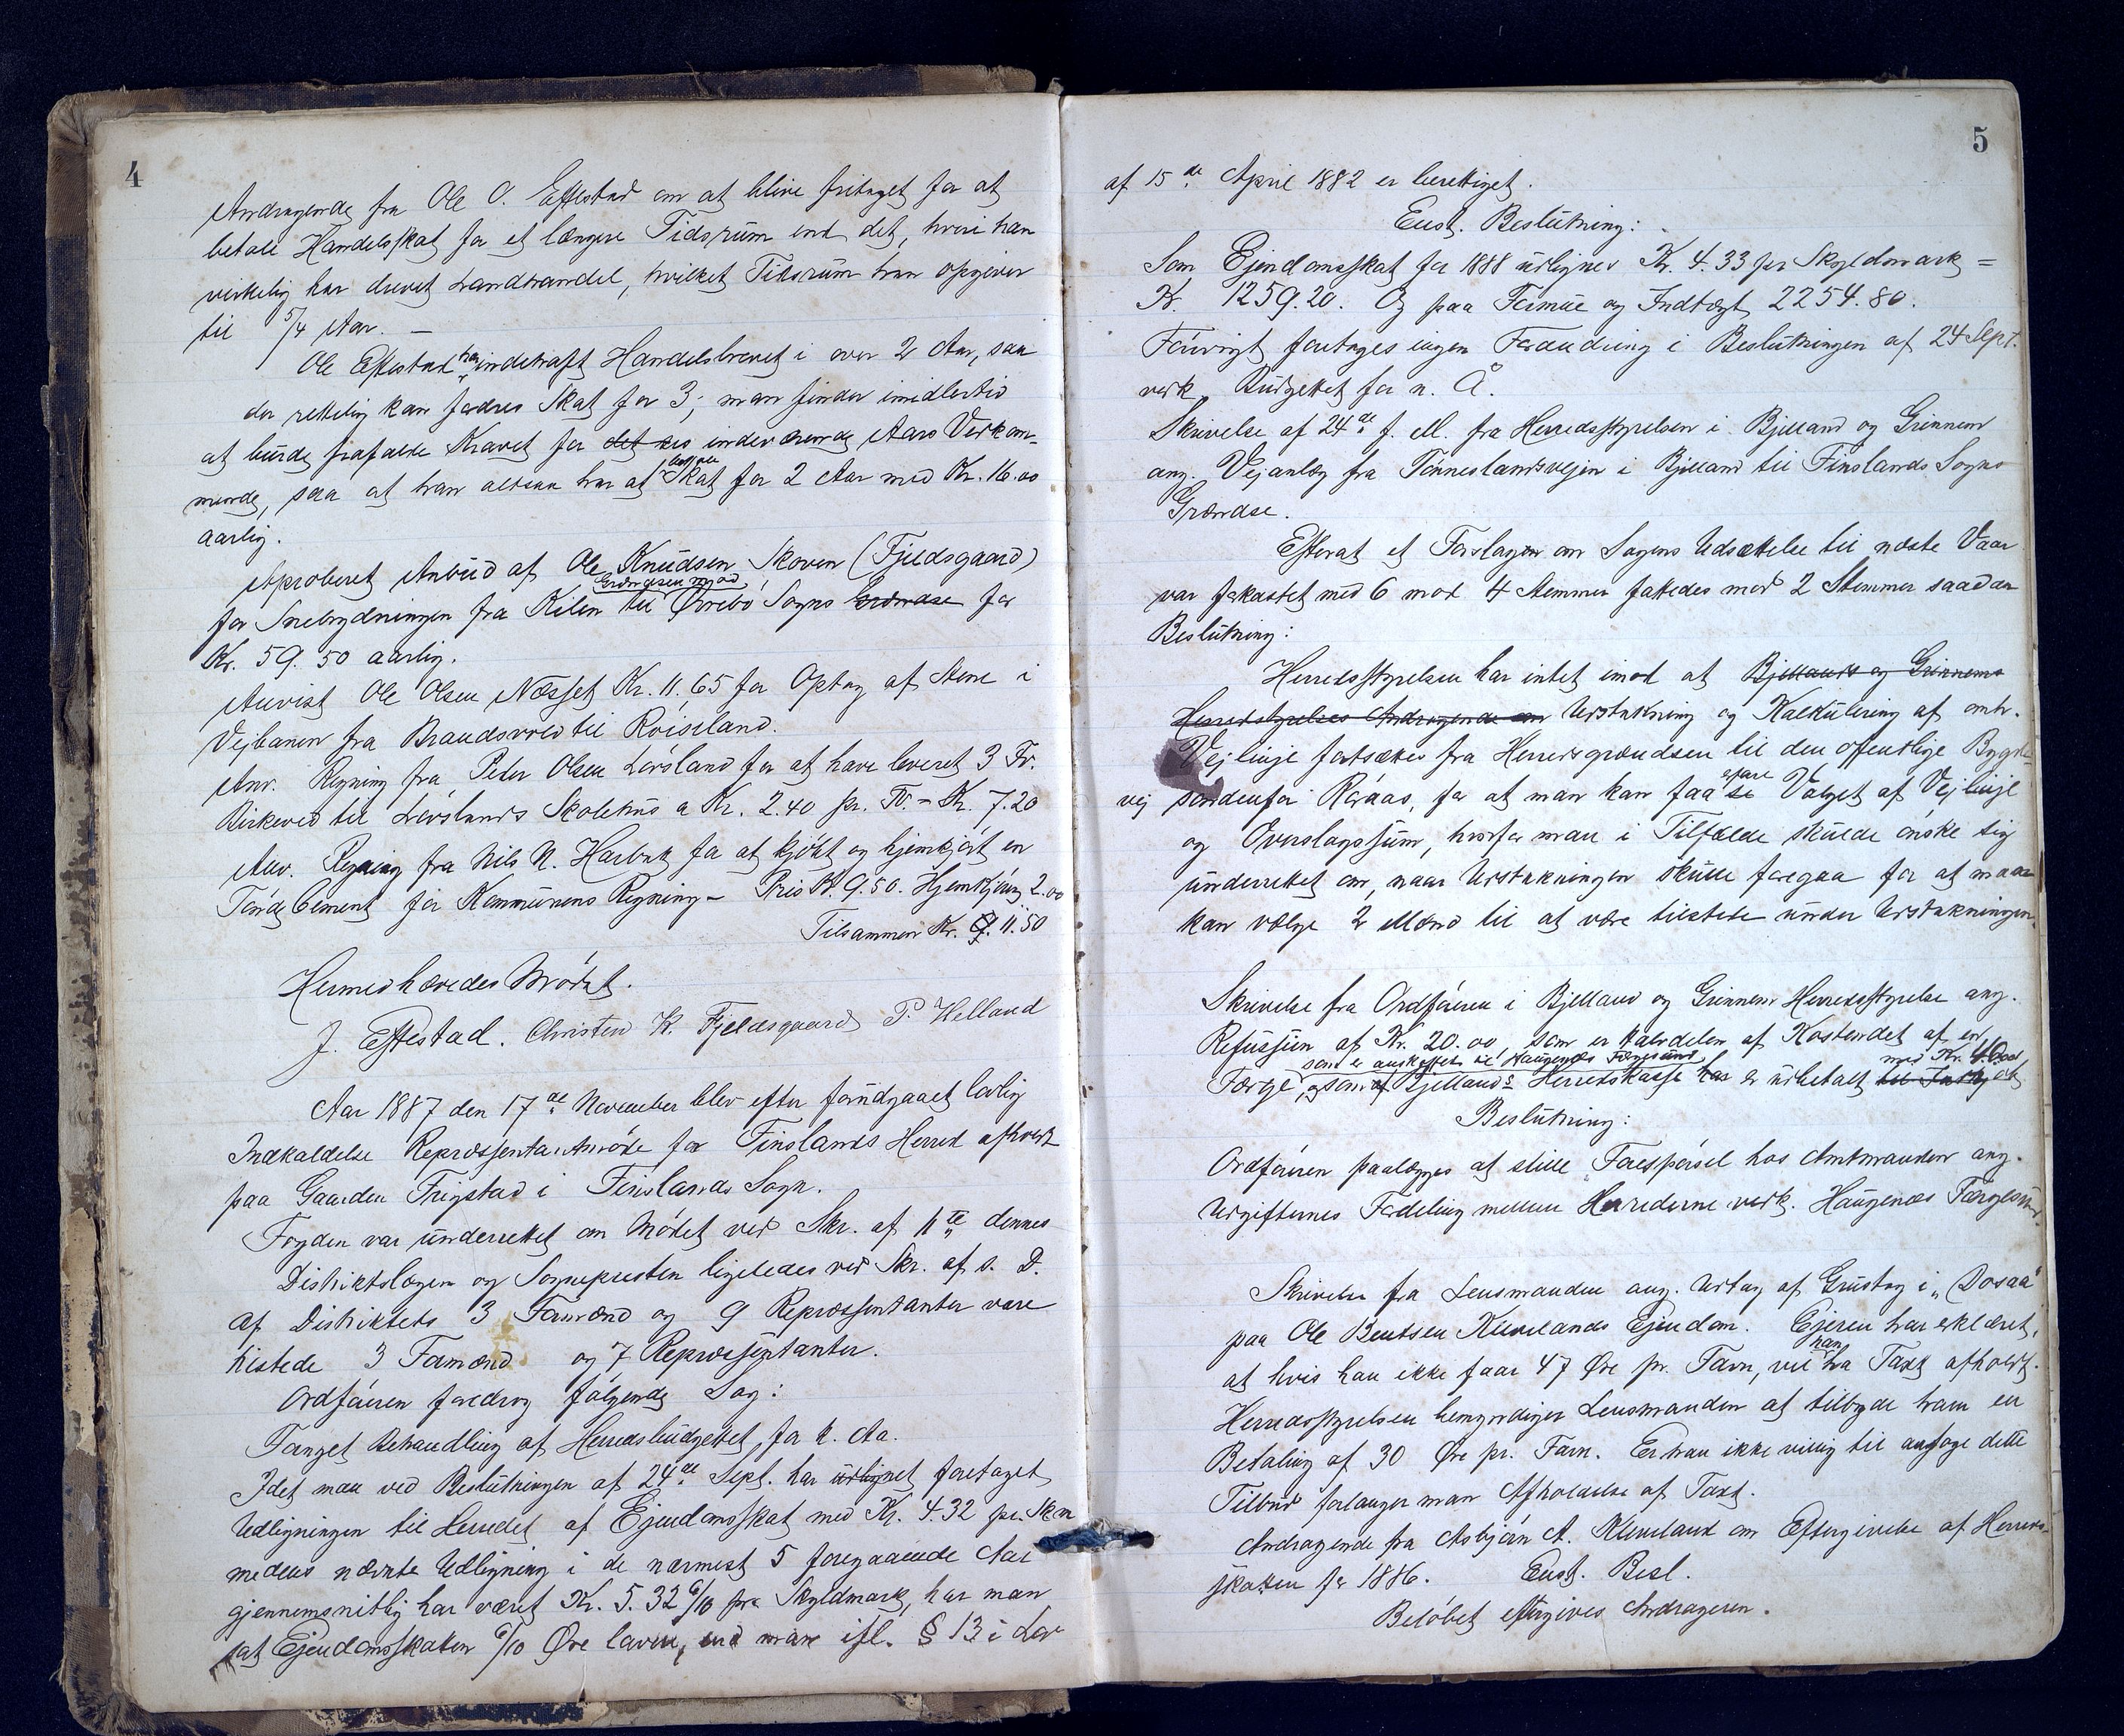 4
Andragende fra Ole O. Eftestad om at blive fritaget for at
betale Handelsskat for et længere Tidsrum end det, hvori han
virkelig har drevet Landhandel, hvilket Tidsrum han opgiver
til 5/4 Aar. —
Ole Eftestad har indehaft Handelsbrevet i over 2 Aar, saa
der rettelig kan fordres Skat for 3; man finder imidlertid
at burde frafalde Kravet for det indeværende Aars Vedkom-
mende, saa at han altsaa har at betale Skat for 2 Aar med Kr. 16.00
aarlig.
Aproberet Anbud af Ole Knudsen Skoven (Fjeldsgaard)
for Snebrydningen fra Kilen til Grændsen mod Øvrebø Sogns Grændse for
Kr. 59.50 aarlig.
Anvist Ole Olsen Næsset Kr. 11,65 for Optag af Stene i
Vejbanen fra Brandsvold til Røiseland.
Anv. Regning fra Peter Olsen Løvsland for at have leveret 3 Fv.
Birkeved til Løvslands Skolehus a Kr. 2.40 pr. Fv. — Kr. 7.20
Anv. Regning fra Nils N. Haebuk for at kjøbt og hjemkjørt en
Tønde Cement for Kommunens Regning — Pris Kr. 9.50. Hjemkjøring 2.00
Tilsammen Kr. 11.50
Hermed hævedes Mødet.
J. Eftestad. Christen K. Fjeldsgaard P. Helland
Aar 1887 den 17de November blev efter forudgaaet lovlig
Indkaldelse Repræsentantmøde for Finslands Herred afholdt
paa Gaarden Frigstad i Finslands Sogn.
Fogden var underrettet om Mødet ved Skr. af 11te dennes
Distriktslægen og Sognepresten ligeledes ved Skr. af s. D.
Af Distriktets 3 Formænd og 9 Repræsentanter vare
tilstede 3 Formænd og 7 Repræsentanter.
Ordføreren foredrog følgende Sag:
Fornyet Behandling af Herredsbudgettet for k. Aa.
Idet man ved Beslutningen af 24de Sept. har udlignet foretaget
Udligningen til Herredet af Ejendomsskat med Kr. 4.32 pr. Skm
medens nævnte Udligning i de nærmest 5 foregaaende Aar
gjennemsnitlig har været Kr. 5.32 6/10 pr. Skyldmark, har man
sat Ejendomsskatten 6/10 Øre lavere, end man ifl. § 13 i Lov
5
af 15de April 1882 er berettiget.
Enst. Beslutning:
Som Ejendomsskat for 1888 udlignes Kr. 4.33 pr Skyldmark =
Kr. 1259.20. Og paa Formue og Indtægt 2254.80.
Forøvrigt foretages ingen Forandring i Beslutningen af 24 Sept.
vedk. Budgettet for n. Å.
Skrivelse af 24de f. M. fra Herredsstyrelsen i Bjelland og Grinnem
ang. Vejanlæg fra Tønneslandsvejen i Bjelland til Finslands Sogns
Grændse.
Efterat et Forslag om Sagens Udsættelse til næste Vaar
var forkastet med 6 mod 4 Stemmer fattedes mod 2 Stemmer saadan
Beslutning:
Herredsstyrelsen har intet imod at Bjellands og Grinnems
Herredsstyrelses Andragende om Udstukning og Kalkulering af omh.
Vejlinje fortsættes fra Herredsgrændsen til den offentlige Bygde-
vej søndenfor Røraas, for at man kan faa se Valget af Vejlinje
og Overslagssum, hvorfor man i Tilfælde skulde ønske sig
underrettet om, naar Udstukningen skulde foregaa for at man
kan vælge 2 Mænd til at være tilstede under Udstukningen.
Skrivelse fra Ordføreren i Bjelland og Grinnems Herredsstyrelse ang.
Refusjon af Kr. 20.00, som er Halvdelen af Kostendet af en
Færge, som er anskaffet til Haugenæs Færgesund, og som af Bjellands Herredskasse har er udbetalt med Kr. 40.00
Beslutning:
Ordføreren paalægges at stille Forespørsel hos Amtmanden ang.
Udgifternes Fordeling mellem Herrederne vedk. Haugenæs Færgesund.
Skrivelse fra Lensmanden ang. Udtag af Grustag i "Dosaa"
paa Ole Bentsen Klevelands Ejendom. Ejeren har erklæret,
at hvis han ikke faar 47 Øre pr. Favn, vil han ha Taxt afholdt.
Herredsstyrelsen bemyndiger Lensmanden at tilbyde ham en
Betaling af 30 Øre pr. Favn. Er han ikke villig til antage dette
Tilbud forlanger man Afholdelse af Taxt.
Andragende fra Asbjørn A. Kleveland om Eftergivelse af Herreds-
skatten for 1886. Enst. Besl.
Beløbet eftergives Andrageren.